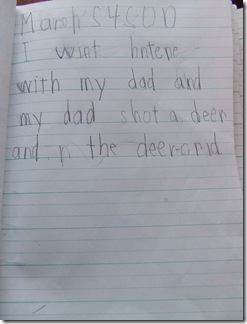 I wint hntene
with my dad and
my dad shot a deer
and the deer